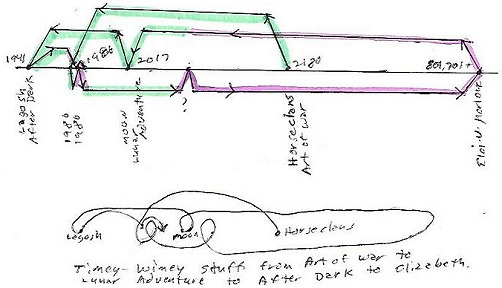 1941
1986
2017
2180
801,701+
Lagosh
After Dark
1986
1986
moon
Lunar
Adventure
?
Horseclans
Art of war
Lagosh
moon
Horseclans
Timey-wimey stuff from Art of war to
Lunar Adventure to After Dark to Elizabeth.